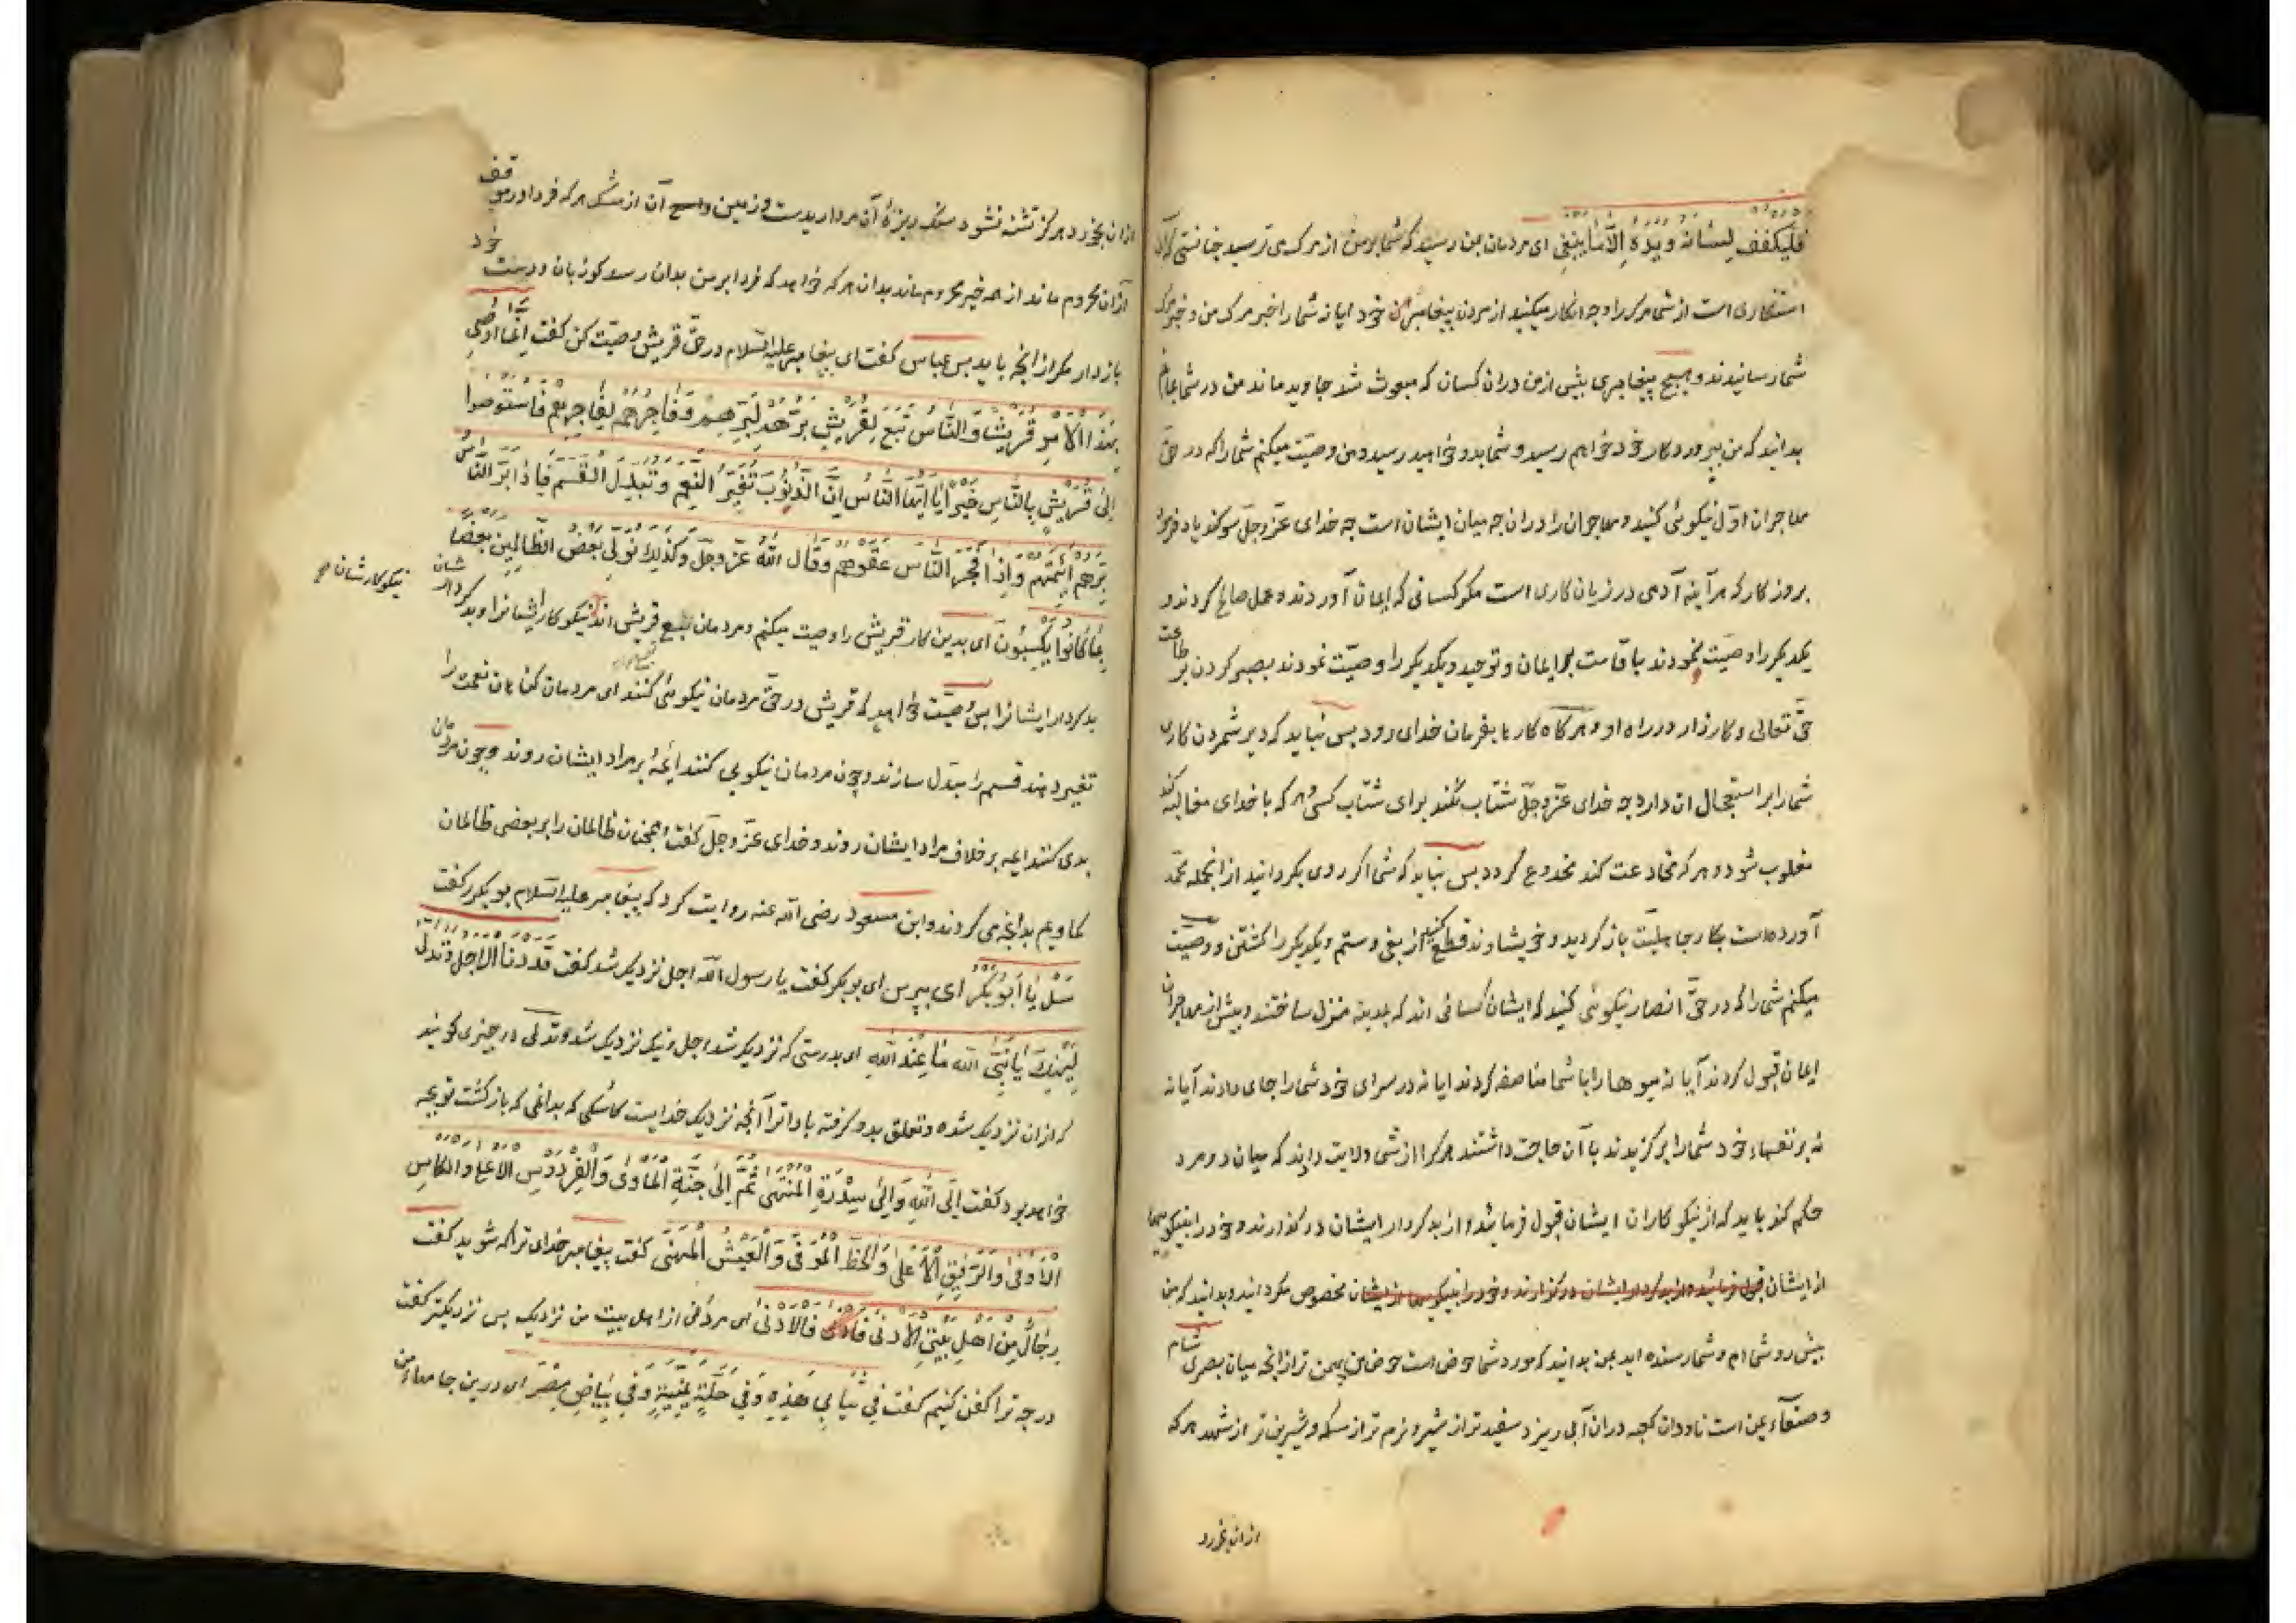 فليكفف لسانه ويده الا فيما ينبغى اى مردمان بمن رسيد كه شما بر من از مرك مى ترسيد چنانستى كه آن
استنكارى است از شما مرك را و چه انكار ميكنيد از مردن پيغامبر خود ايا نه شما را خبر مرك من و خبر مرك
شما رسانيدند و هيچ پيغامبرى پيش از من دران كسان كه مبعوث شد جاويد ماند من در شما بمانم
بدانيد كه من بپروردكار خود خواهم رسيد و شما بدو خواهيد رسيد و من وصيت ميكنم شما را كه در حق
مهاجران اول نيكوئى كنيد و مهاجران را دران چه ميان ايشان است چه خداى عز و جل سوكند ياد فرمود
بروزكار كه هر آينه آدمى در زيان كارى است مكر كسانى كه ايمان آوردند و عمل صالح كردند و
يكديكر را وصيت نمودند باقامت بر ايمان و توحيد و يكديكر را وصيت نمودند بصبر كردن بر طاعت
حق تعالى و كارزار در راه او و هركاه كارها بفرمان خداى رود پس نبايد كه دير شمردن كارى
شما را بر استعجال ان دارد چه خداى عز و جل شتاب نكند براى شتاب كسى و هر كه با خداى مغالبه كند
مغلوب شود و هر كه مخادعت كند مخدوع كردد پس نبايد كه شما اكر روى بكردانيد از انجمله محمد
آورده است بكار جاهليت باز كرديد و خويشاوند قطع كنيد از بغى و ستم و يكديكر را كشتن و وصيت
ميكنم شما را كه در حق انصار نيكوئى كنيد كه ايشان كسانى اند كه بمدينه منزل ساختند و پيش از مهاجران
ايمان قبول كردند آيا نه ميوها را با شما مناصفه كردند ايا نه در سراى خود شما را جاى دادند آيا نه
نه بر نفسهاء خود شما را بركزيدند با آن حاجت داشتند هر كرا از شما ولايت دهند كه ميان دو مرد
حكم كند بايد كه از نيكوكاران ايشان قبول فرمايند و از بدكردار ايشان در كذارند و خود را بنيكوييها
از ايشان قبول فرمائيد و از بدكردار ايشان در كزارند و خود را بنيكويها از ايشان مخصوص مكردانيد و بدانيد كه من
پيش رو شما ام و شما رسنده ايد بمن بدانيد كه مورد شما حوض است حوض من پهن تر از انچه ميان بصرى شام
و صنعآء يمن است ناودان كعبه دران آبى ريزد سفيد تر از شير و نرم تر از مسكه و شيرين تر از شهد هر كه
ازان بخورد
ازان بخورد هركز تشنه نشود سنك ريزهٔ آن مرواريدست و زمين آن از مشك هر كه فردا در موقف
ازان محروم ماند از همه خير محروم ماند بدان هر كه خواهد كه فردا بر من بدان رسد كو زبان و دست خود
باز دار مكر از انچه بايد پس عباس كفت اى پيغامبر عليه السلام در حق قريش وصيت كن كفت انما اوصى
بهذا الامر قريشا و الناس تبع لقريش برهم لبرهم و فاجرهم لفاجرهم فاستوصوا
الى قريش بالناس خيرا يا ايها الناس ان الذنوب تغير النعم و تبدل القسم فاذا بر الناس
برهم ائمتهم و اذا فجر الناس عقوهم و قال الله عز و جل و كذلك نولى بعض الظالمين بعضا
بما كانوا يكسبون اى بدين كار قريش را وصيت ميكنم و مردمان تبع قريش اند نيكوكار ايشانرا و بدكردارشان
نيكوكارشان
بدكردار ايشانرا پس وصيت خواهيد كه قريش در حق مردمان نيكوئى كنند اى مردمان كناهان نعمت را
تغير دهند قسم را مبدل سازند و چون مردمان نيكويى كنند ايمهٔ بر مراد ايشان روند و چون مردمان
بدى كنند ايمه بر خلاف مراد ايشان روند و خداى عز و جل كفت و همچنان ظالمان را بر بعضى ظالمان
كماريم بدانچه مى كردند و ابن مسعود رضى الله عنه روايت كرد كه پيغامبر عليه السلام بو بكر را كفت
سل يا ابو بكر اى بپرس اى بو بكر كفت يا رسول الله اجل نزديك شد كفت قد دنا الاجل و تدلى
ليهنك يا نبى الله ما عند الله اى بدرستى كه نزديك شد اجل و نيك نزديك شد و تدلى در چيزى كويند
كه ازان نزديك شده و تعلق بدو كرفته باد ترا آنچه نزديك خدايست كاشكى كه بدانمى كه باز كشت تو بچه
خواهد بود كفت الى الله و الى سدرة المنتهى ثم الى جنة المأوى و الفردوس الاعلى و الكاس
الاوفى و الرفيق الاعلى و الحظ الموفى و العيش المهنى كفت پيغامبر خداى ترا كه شويد كفت
رجال من اهل بيتى الادنى فالادنى اى مردمى از اهل بيت من نزديك پس نزديكتر كفت
در چه ترا كفن كنيم كفت فى ثيابى هذه و فى حلة يمنية و فى بياض مصر اى درين جامهاء من